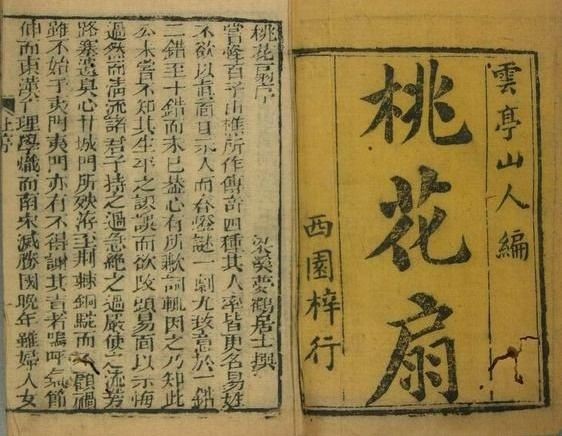 雲亭山人編
桃花扇
西園梓行
桃花扇序 梁溪夢鶴居士撰
嘗怪百子山樵所作傳奇四種其人率皆更名易姓
不欲以真面目示人而春燈謎一劇尤致意於一錯
二錯至十錯而未已蓋心有所歉詞輒因之乃知此
公未嘗不知其生平之謬誤而欲改頭易面以示悔
過然而清流諸君子持之過急絕之過嚴使之流芳
路塞遺臭心甘城門所殃洊至荆棘銅駝而不顧禍
雖不始于夷門夷門亦有不得謝其責者嗚呼氣節
伸而東漢亡理學熾而南宋滅勝國晚年雖婦人女